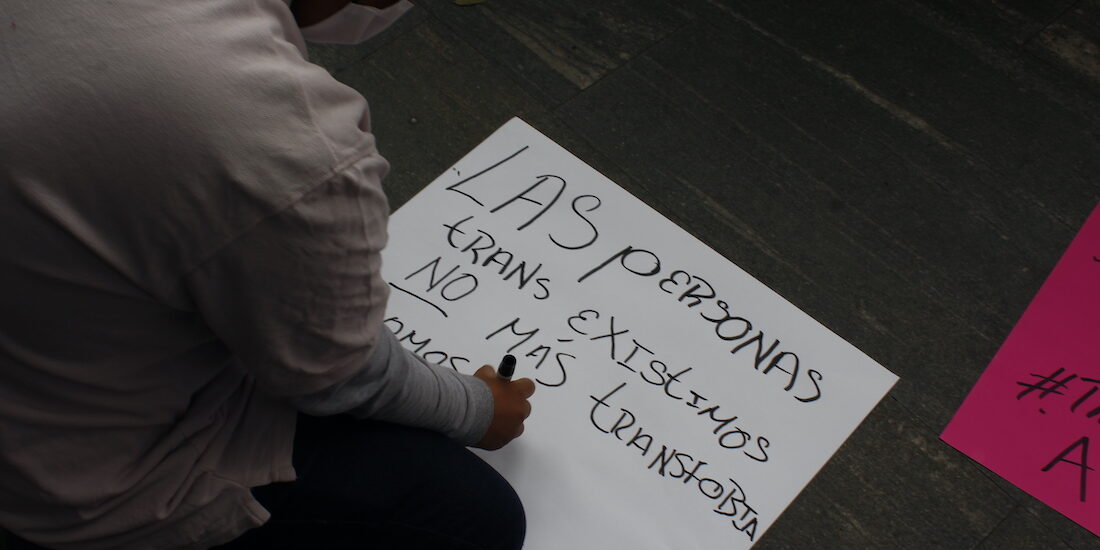 LAS pERSONAS
tRANS EXIStIMOS
NO MÁS tRANSfOBIA
#T
A